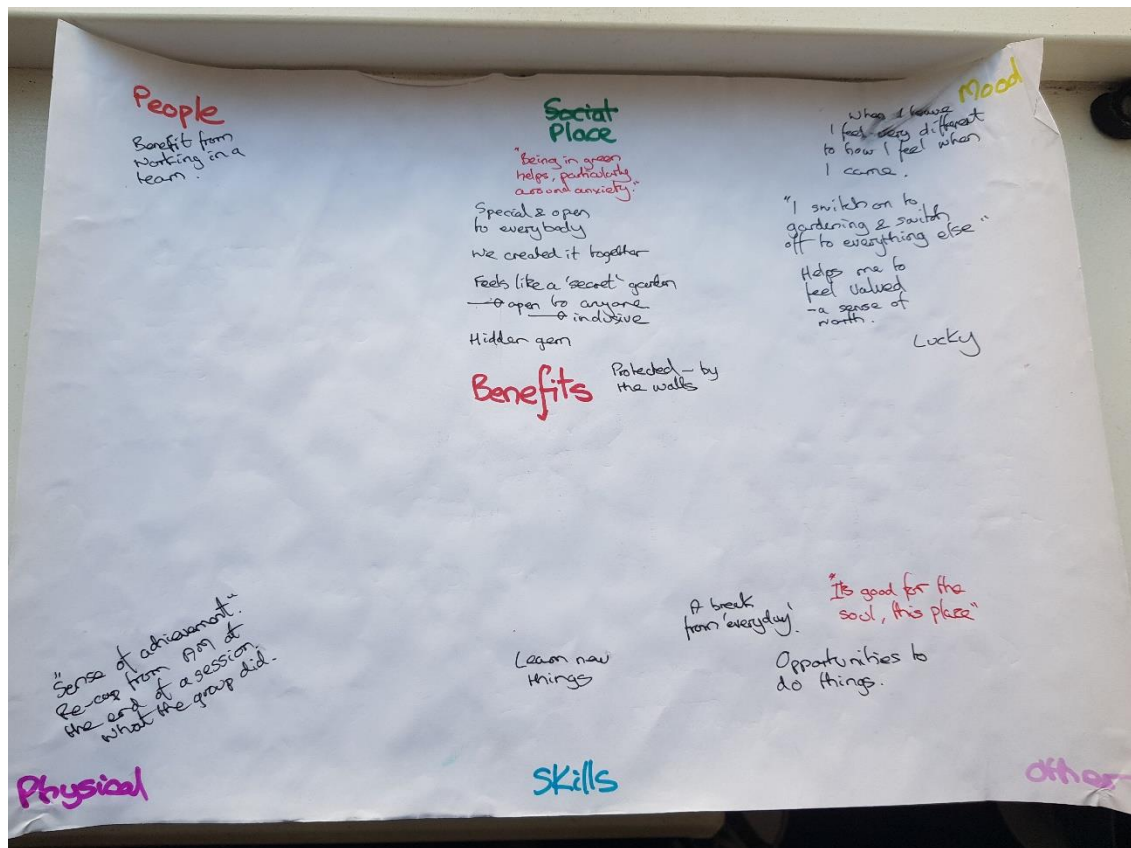 People
Benefit from
working in a
team.
Social
Place
"Being in green
helps, particularly
around anxiety."
Special & open
to everybody
We created it together
Feels like a 'secret' garden
→ open to anyone
→ inclusive
Hidden gem
Mood
When I leave
I feel very different
to how I feel when
I came.
"I switch on to
gardening & switch
off to everything else"
Helps me to
feel valued
- a sense of
worth.
Lucky
Benefits
Protected - by
the walls
"Sense of achievement".
Re-cap from AM at
the end of a session.
what the group did.
Physical
Learn new
things
Skills
A break
from 'everyday'.
"Its good for the
soul, this place"
Opportunities to
do things.
Other